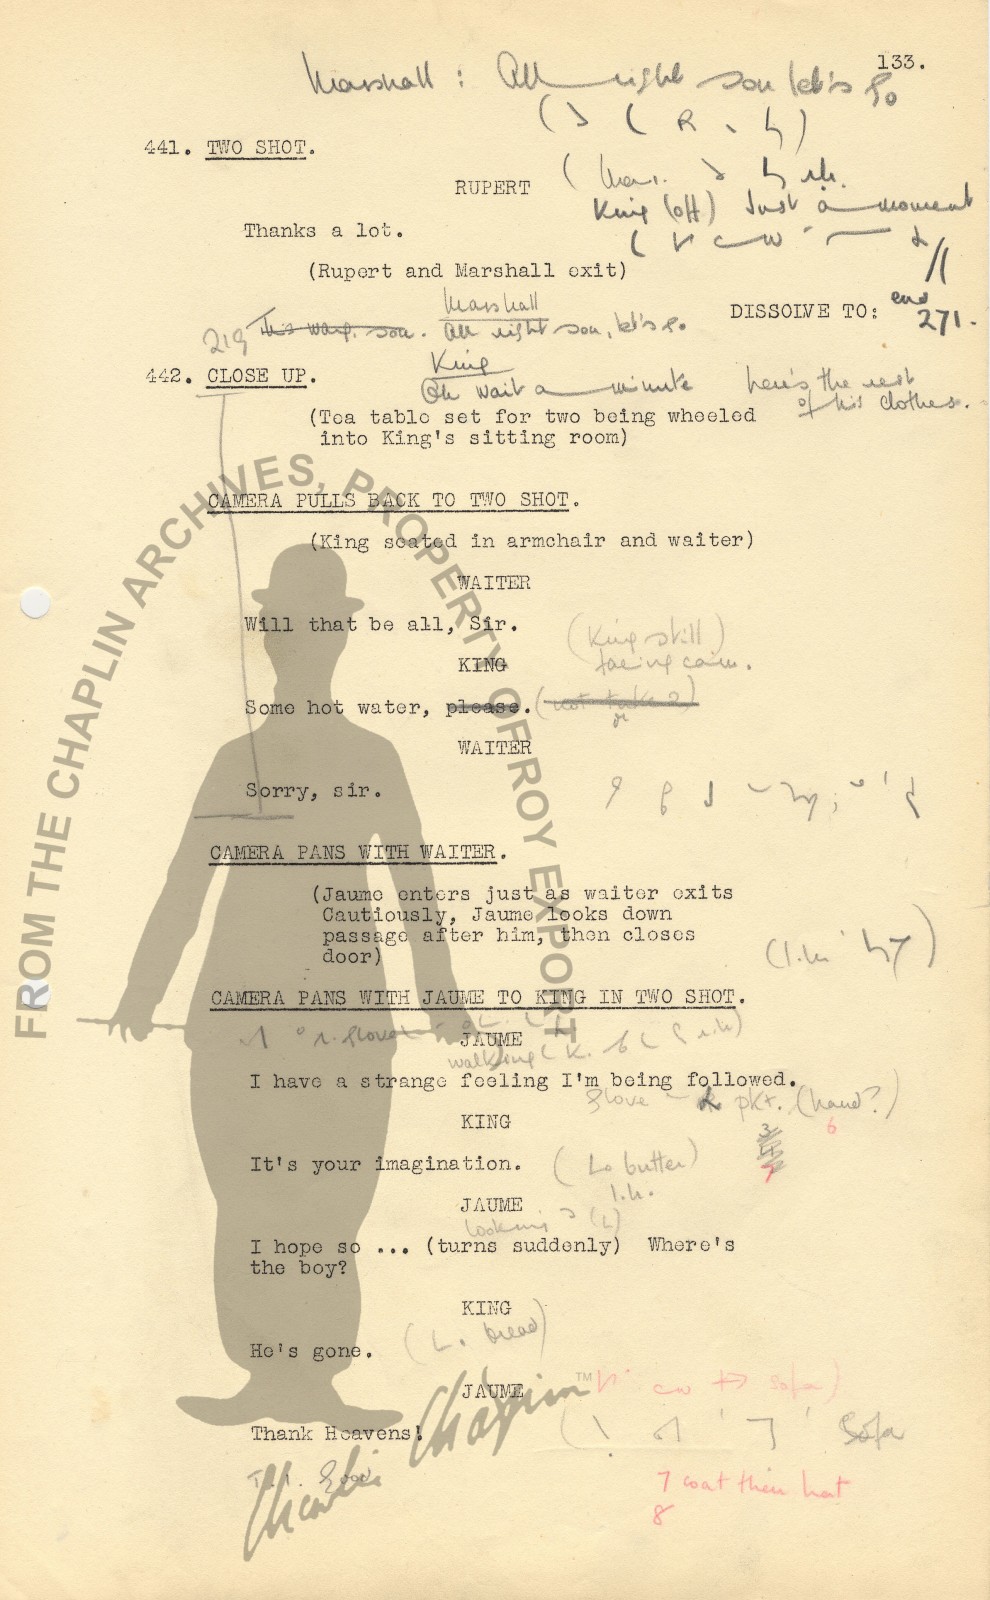 133.
Marshall : All right son let's go
441. TWO SHOT.
RUPERT
King (off) Just a moment
Thanks a lot.
(Rupert and Marshall exit)
Marshall
DISSOLVE TO:
end
271.
219
This way, son. All right son, let's go.
King
442. CLOSE UP.
Oh wait a minute here's the rest
of his clothes.
(Tea table set for two being wheeled
into King's sitting room)
CAMERA PULLS BACK TO TWO SHOT.
(King seated in armchair and waiter)
WAITER
Will that be all, Sir.
(King still)
facing cam.
KING
Some hot water, please. (not take 2)
WAITER
Sorry, sir.
CAMERA PANS WITH WAITER.
(Jaume enters just as waiter exits
Cautiously, Jaume looks down
passage after him, then closes
door)
CAMERA PANS WITH JAUME TO KING IN TWO SHOT.
JAUME
walking
I have a strange feeling I'm being followed.
glove R pkt. (hand?)
6
KING
7
It's your imagination. (L. butter)
l.h.
JAUME
looking (L)
I hope so ... (turns suddenly) Where's
the boy?
KING
He's gone. (L. bread)
JAUME
sofa)
Thank Heavens!
Sofa
7 coat then hat
8
FROM THE CHAPLIN ARCHIVES, PROPERTY OF ROY EXPORT
Charlie Chaplin™